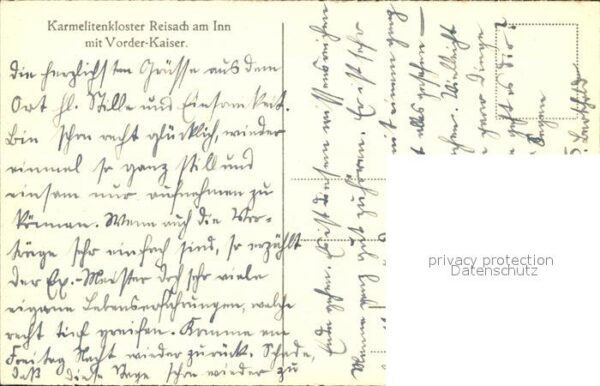 Karmelitenkloster Reisach am Inn
mit Vorder-Kaiser.
die herzlichsten Grüsse aus dem
Ort hl. Stille und Einsamkeit.
Bin schon recht glücklich, wieder
einmal so ganz still und
einsam nur aufnehmen zu
können. Wenn auch die Vor-
träge sehr einfach sind, so erzählt
der Ex.-Meister doch sehr viele
eigene Lebenserfahrungen, welche
recht tief greifen. Komme am
Freitag Nacht wieder zurück. Schade,
daß diese Tage schon wieder zu
Ende gehen. Es ist
Manne ganz gut zuhören. Er ist sehr
mit
alles gesehen –
Vielleicht
paar Dinge
geht es dir?
privacy protection
Datenschutz